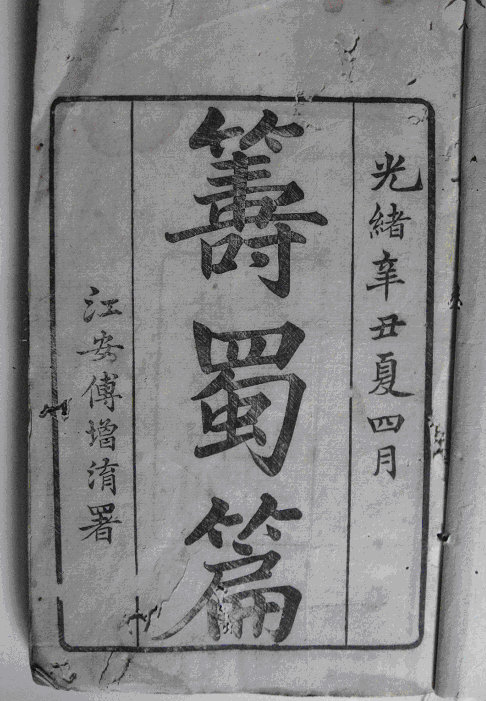 光緒辛丑夏四月
籌蜀篇
江安傅增淯署